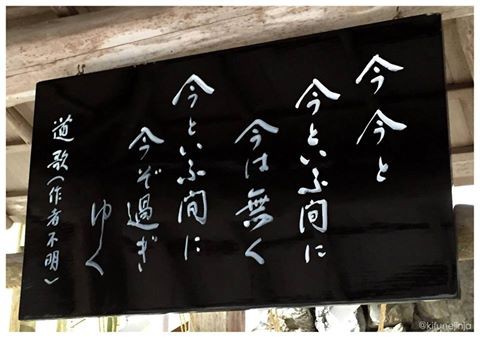 今今と
今といふ間に
今は無く
今といふ間に
今ぞ過ぎ
ゆく
道歌（作者不明）
@kifunejinja